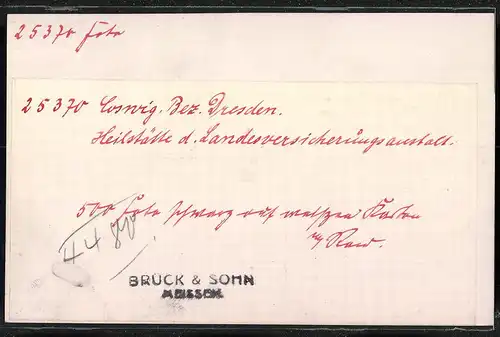 25370 Foto
25370 Coswig. Bez. Dresden.
Heilstätte d. Landesversicherungsanstalt.
500 Foto schwarz auf weißen Karten
m/ Rand.
4480
BRÜCK & SOHN
MEISSEN